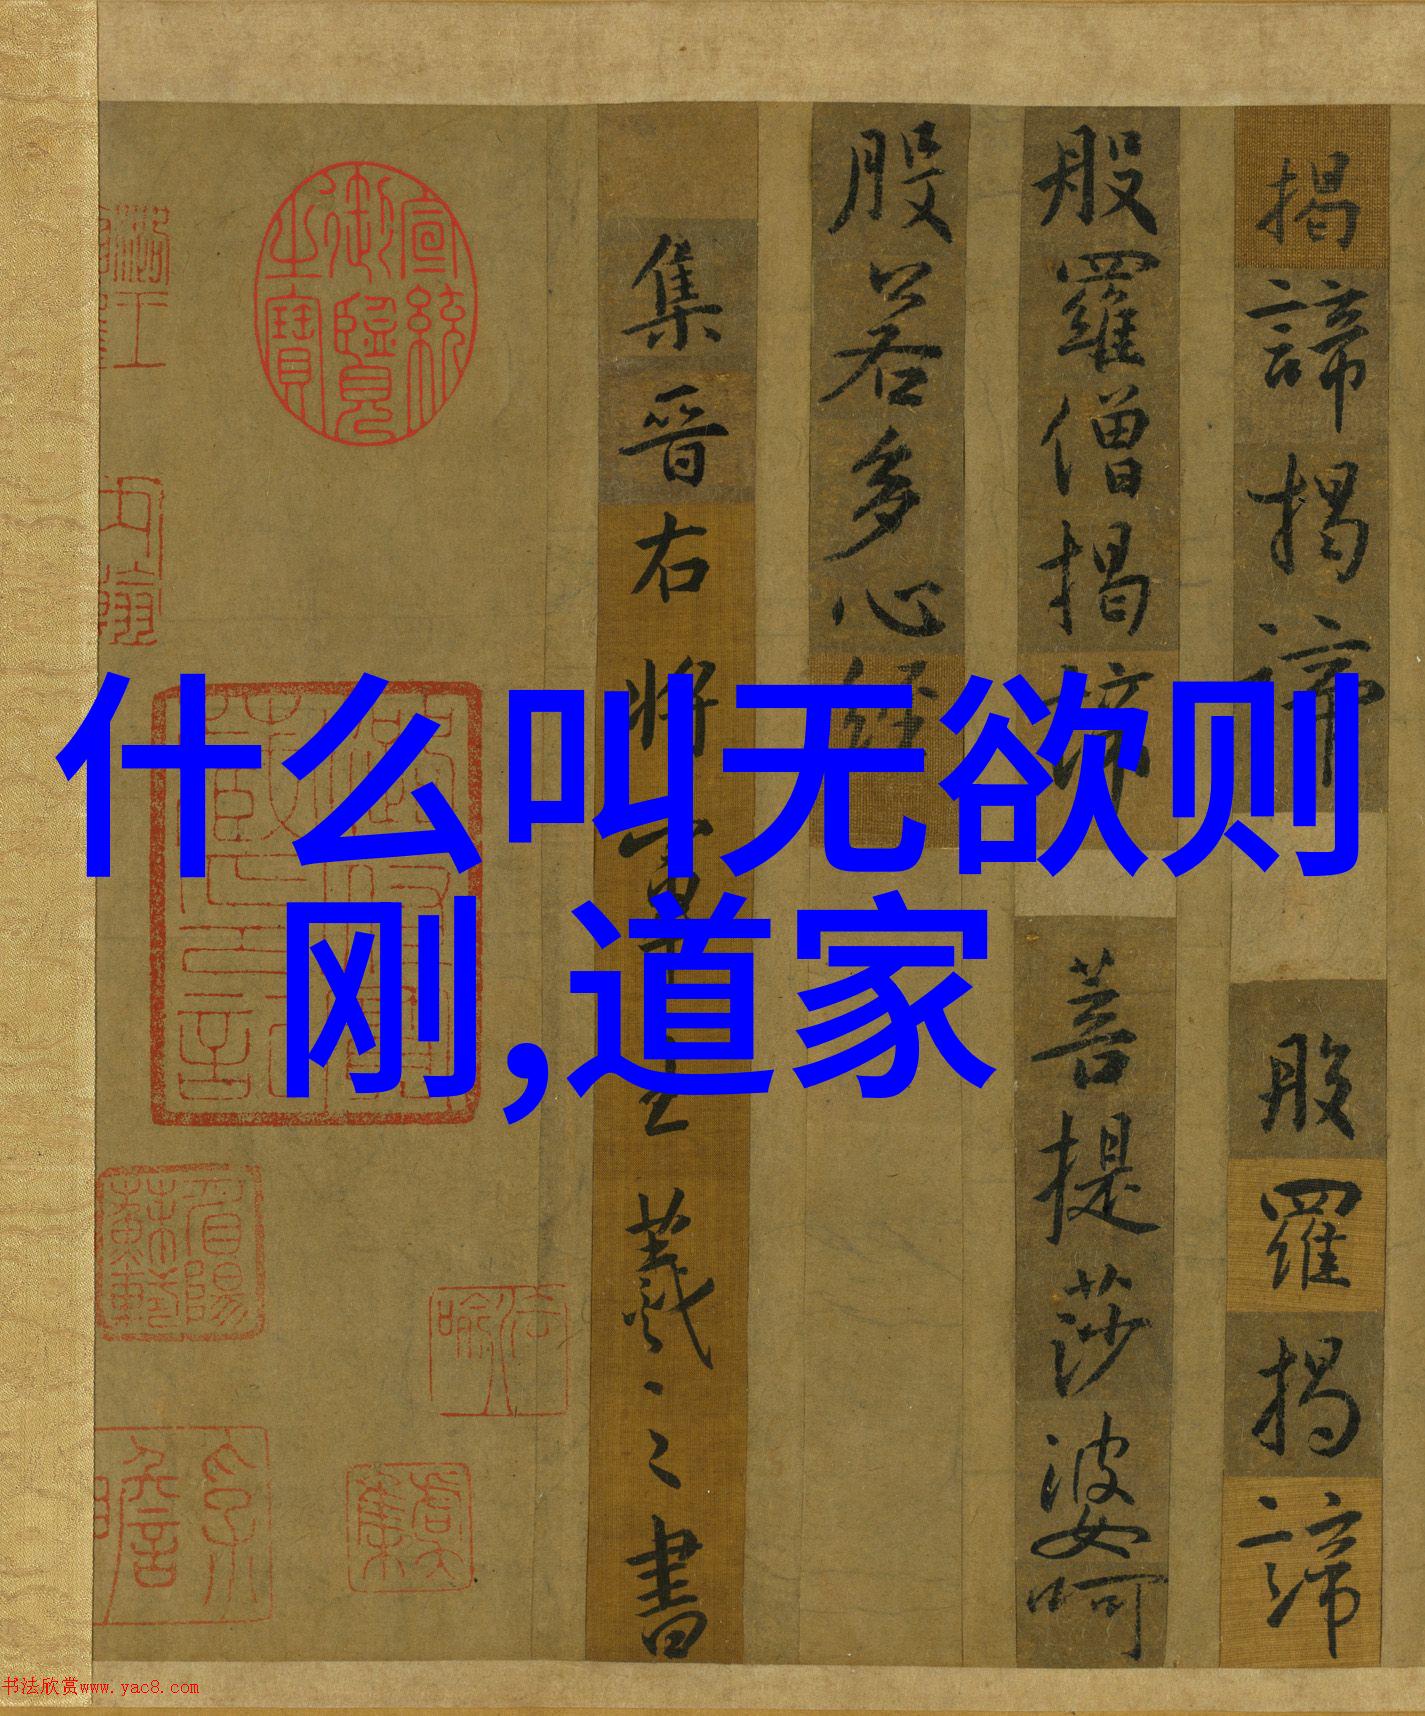 什么叫无欲则
刚,道家
揭諦揭諦
般羅揭諦
般羅僧揭諦
菩提莎婆呵
般若多心經
集晉右將軍王羲之書
宣統御覽之寶
书法欣赏www.yac8.com